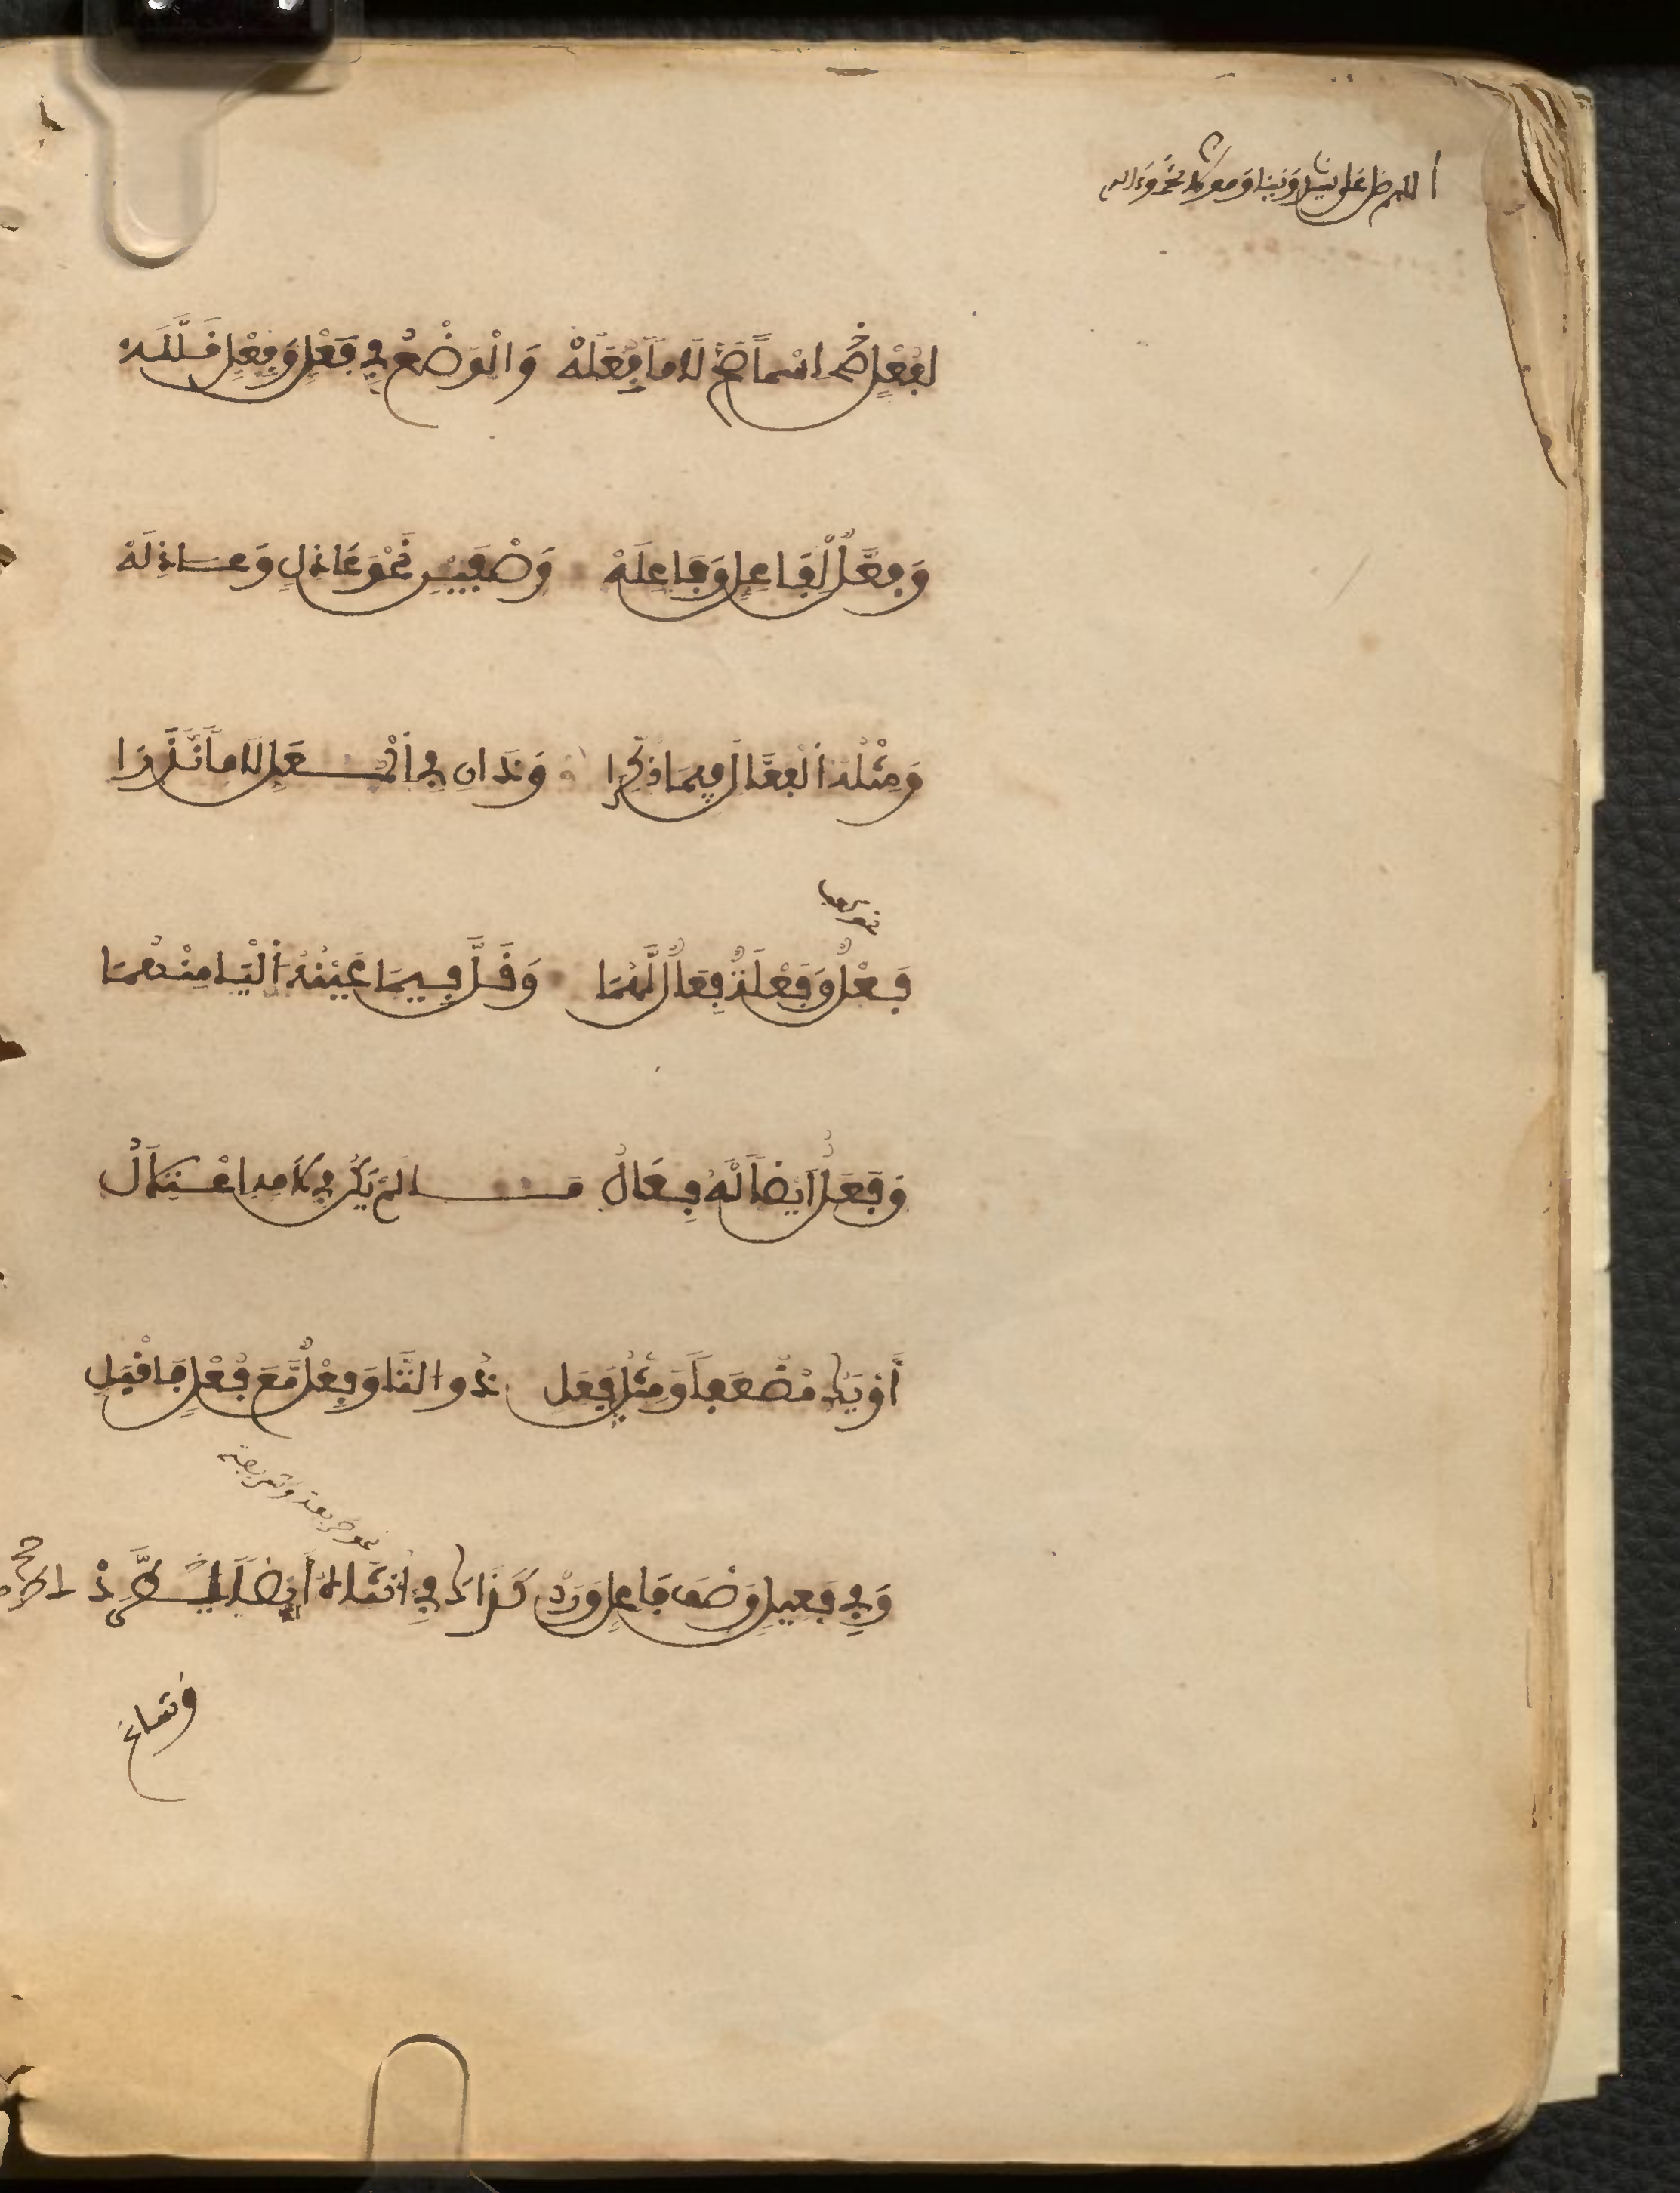 اللهم صل على سيدنا ونبينا ومولانا محمد وءاله
لِفُعْلٍ اسْماً صَحَّ لَاماً فِعَلَهْ وَالْوَضْعُ فِي فَعْلٍ وَفِعْلٍ قَلَّلَهْ
وَفُعَّلٌ لِفَاعِلٍ وَفَاعِلَهْ وَصْفَيْنِ نَحْوُ عَاذِلٍ وَعَاذِلَهْ
وَمِثْلُهُ الْفُعَّالُ فِيمَا ذُكِّرَا وَذَانِ فِي الْمُعَلِّ لَاماً نَدَرَا
نحو
فَعْلٌ وَفَعْلَةٌ فِعَالٌ لَّهُمَا وَقَلَّ فِيمَا عَيْنُهُ الْيَا مِنْهُمَا
وَفَعَلٌ أَيْضاً لَّهُ فِعَالُ مَا لَمْ يَكُن فِي لَامِهِ اعْتِلَالُ
أَوْ يَكُ مُضْعَفاً وَمِثْلُ فَعَلِ ذُو التَّا وَفِعْلٌ مَّعَ فُعْلٍ فَاقْبَلِ
وَفِي فَعِيلٍ وَصْفَ فَاعِلٍ وَرَدْ كَذَاكَ فِي أُنْثَاهُ أَيْضاً اطَّرَدْ
وشاع